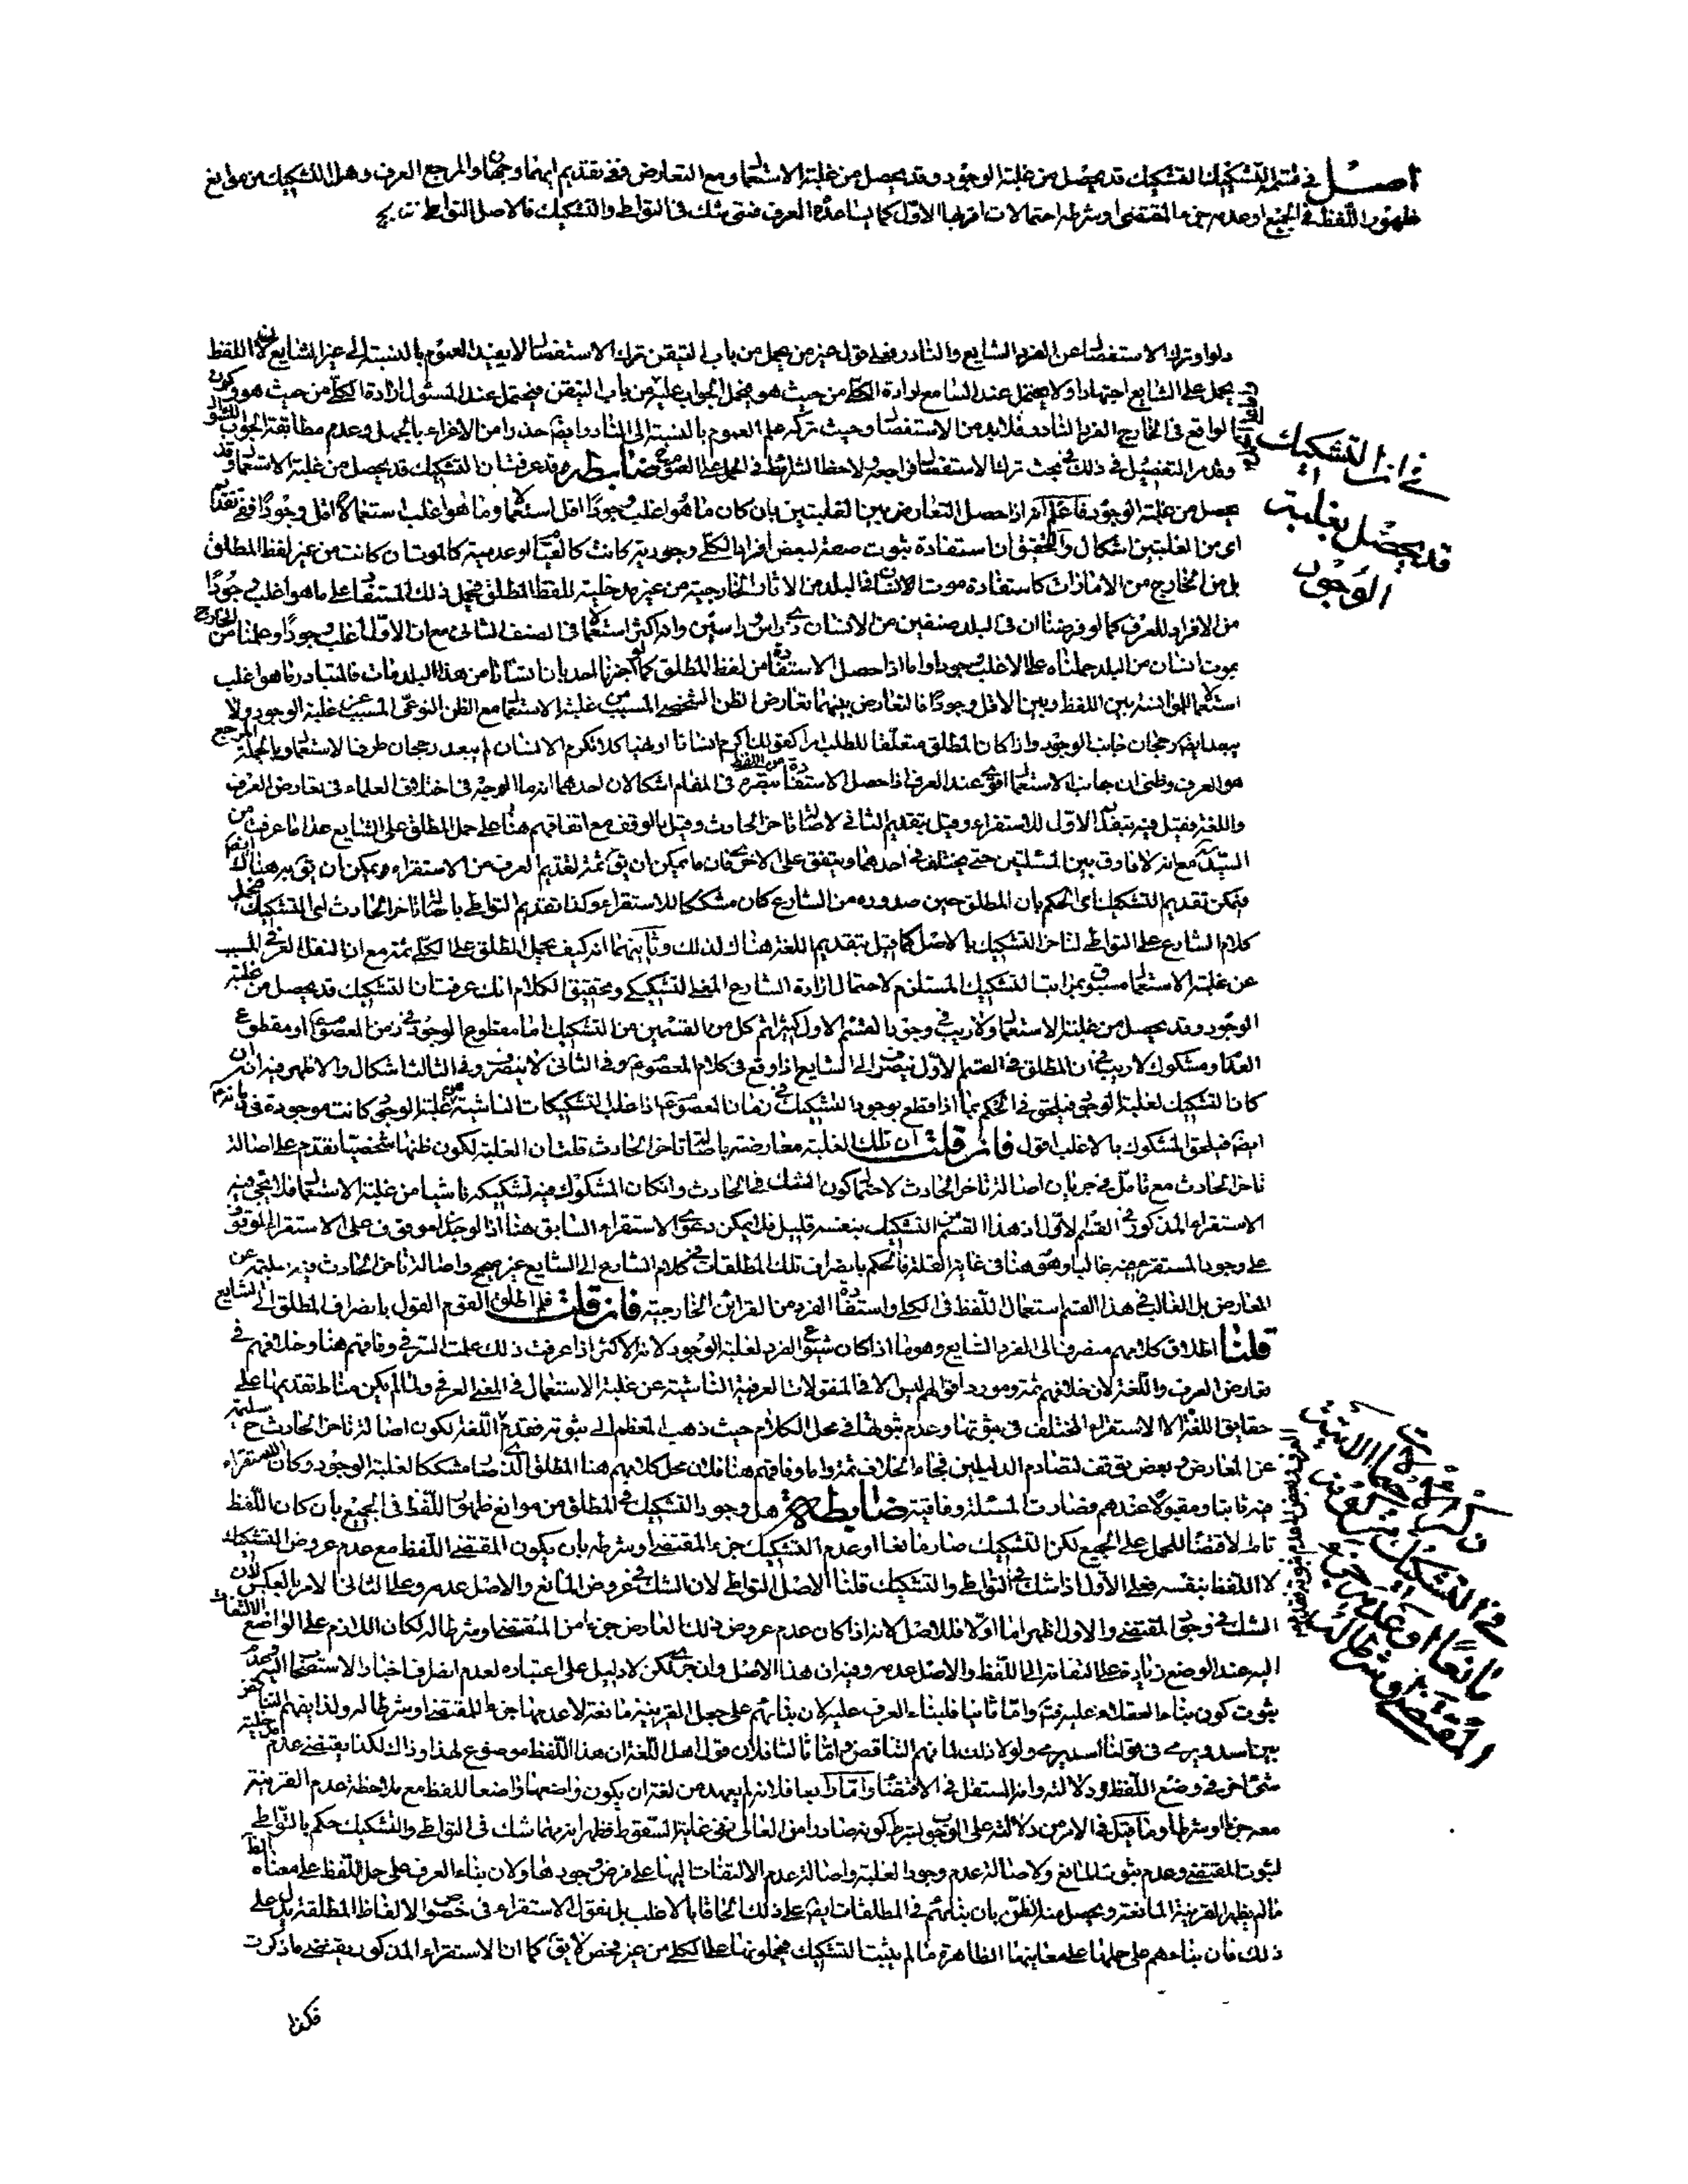 اصل في قسمي التشكيك التشكيك قد يحصل من غلبة الوجود وقد يحصل من غلبة الاستعمال ومع التعارض ففي تقديم ايهما وجهان والمرجع العرف وهل التشكيك من موانع
ظهور اللفظ في الجميع او عدمه جزء المقتضى او شرطه احتمالات اقربها الاول كما يساعده العرف فمتى شك في التواطي والتشكيك فالاصل التواطي
ولو ترك الاستفصال عن الفرد الشايع والنادر فعلى قول من يحمل من باب التيقن ترك الاستفصال لا يفيد العموم بالنسبة الى غير الشايع لان اللفظ
يحمل على الشايع اجتهادا ولا يحتمل عند السامع ارادة الكلي من حيث هو فيحمل الجواب عليه من باب التيقن فيحتمل عند المسئول ارادة الكلي من حيث هو وكون
الواقع في الخارج الفرد النادر فلابد من الاستفصال وحيث تركه علم العموم بالنسبة الى النادر ايضا حذرا من الاغراء بالجهل وعدم مطابقة الجواب للسؤال
وقد مر التفصيل في ذلك في بحث ترك الاستفصال فراجعه ولاحظ الشرائط في الحمل على العموم ضابطة قد عرفت ان التشكيك قد يحصل من غلبة الاستعمال وقد
يحصل من غلبة الوجود فاعلم انه اذا حصل التعارض بين الغلبتين بان كان ما هو اغلب وجودا اقل استعمالا وما هو اغلب استعمالا اقل وجودا ففي تقديم
اي من الغلبتين اشكال والتحقيق ان استفادة ثبوت صفة لبعض افراد الكلي وجودية كانت كالغيا او عدمية كالموت ان كانت من غير لفظ المطلق
بل من الخارج من الامارات كاستفادة موت الانسان في البلد من الاثار الخارجية من غير مدخلية للفظ المطلق فيحمل ذلك المستفاد على ما هو اغلب وجودا
من الافراد للعرف كما لو فرضنا ان في البلد صنفين من الانسان ذي راس وراسين وان اكثر استعمالا في الصنف الثاني مع ان الاول اغلب وجودا وعلمنا من الخارج
بموت انسان من البلد حملناه على الاغلب وجودا واما اذا حصل الاستفادة من لفظ المطلق كما لو اخبرنا احد بان انسانا من هذا البلد مات فالمتبادر ما هو اغلب
استعمالا للمؤانسة بين اللفظ وبين الاقل وجودا فالتعارض بينهما تعارض الظن الشخصي المسبب من غلبة الاستعمال مع الظن النوعي المسبب عن غلبة الوجود ولا
يبعد ايضا رجحان جانب الوجود واذا كان المطلق متعلقا للطلب امرا كقولك اكرم انسانا او نهيا كلا تكرم الانسان لم يبعد رجحان طرف الاستعمال وبالجملة المرجع
هو العرف وظني ان جانب الاستعمال اقوى عند العرف اذا حصل الاستفادة من اللفظ تبصرة في المقام اشكالان احدهما انه ما الوجه في اختلاف العلماء في تعارض العرف
واللغة فقيل فيه بتقديم الاول للاستقراء وقيل بتقديم الثاني لاصالة تاخر الحادث وقيل بالوقف مع اتفاقهم هنا على حمل المطلق على الشايع عدا ما عرفت من
السيد مع انه لا فارق بين المسئلتين حتى يختلف في احدهما ويتفق على الاخرى فان ما يمكن ان يق ثمة لتقديم العرف من الاستقراء ويمكن ان يق به هنا ايضا
فيمكن تقديم التشكيك اي الحكم بان المطلق حين صدوره من الشارع كان مشككا للاستقراء وكذا تقديم التواطي باصالة تاخر الحادث اي التشكيك فيحمل
كلام الشارع على التواطي لتاخر التشكيك بالاصل كما قيل بتقديم اللغة هناك لذلك وثانيهما انه كيف يحمل المطلق على الكلي ثمة مع ان النقل العرفي المسبب
عن غلبة الاستعمال مسبوق بمراتب التشكيك المستلزم لاحتمال ارادة الشارع المعنى التشكيكي وتحقيق الكلام انك عرفت ان التشكيك قد يحصل من غلبة
الوجود وقد يحصل من غلبة الاستعمال ولا ريب في وجود القسم الاول كثيرا ثم كل من القسمين من التشكيك اما مقطوع الوجود في زمن المعصوم او مقطوع
العدم او مشكوك لا ريب في ان المطلق في القسم الاول ينصرف الى الشايع اذا وقع في كلام المعصوم وفي الثاني لا ينصرف وفي الثالث اشكال والاظهر فيه ان
كان التشكيك لغلبة الوجود فيلحق في الحكم بما اذا قطع بوجود التشكيك في زمان المعصوم اذ اغلب التشكيكات الناشية من غلبة الوجود كانت موجودة في زمانهم
ايضا فيلحق المشكوك بالاغلب اقول فان قلت ان تلك الغلبة معارضة باصالة تاخر الحادث قلت ان الغلبة لكون ظنها شخصيا تقدم على اصالة
تاخر الحادث مع تامل في جريان اصالة تاخر الحادث لاحتمال كون الشك في الحادث وان كان المشكوك فيه تشكيكه ناشيا من غلبة الاستعمال فلا يجري فيه
الاستقراء المذكور في القسم الاول اذ هذا القسم من التشكيك بنفسه قليل فلا يمكن دعوى الاستقراء السابق هنا اذ الوجه الموقوف على الاستقراء الموقوف
على وجود المستقرء فيه غالبا وهو هنا في غاية القلة فالحكم بانصراف تلك المطلقات في كلام الشارع الى الشايع غير صحيح واصالة تاخر الحادث فيه سليمة عن
المعارض بل الغالب في هذا القسم استعمال اللفظ في الكلي واستفادة الفرد من القرائن الخارجية فان قلت فلم اطلق القوم القول بانصراف المطلق الى الشايع
قلنا اطلاق كلامهم منصرف الى الفرد الشايع وهو ما اذا كان شيوع الفرد لغلبة الوجود لانه الاكثر اذا عرفت ذلك علمت السر في وفاقهم هنا وخلافهم في
تعارض العرف واللغة لان خلافهم ثمة ومورد اقوالهم ليس الا في المنقولات العرفية الناشية عن غلبة الاستعمال في المعنى العرفي ولما لم يكن مناط تقديمها على
حقايق اللغة الا الاستقراء المختلف في ثبوتها وعدم ثبوتها في محل الكلام حيث ذهب المعظم الى ثبوته فقدم اللغة لكون اصالة تاخر الحادث ح سليمة
عن المعارض وبعض توقف لتصادم الدليلين فجاء الخلاف ثمة واما وفاقهم هنا فلان محل كلامهم هنا المطلق الذي صار مشككا لغلبة الوجود وكان الاستقراء
فيه ثابتا ومقبولا عندهم فصارت المسئلة وفاقية ضابطة هل وجود التشكيك في المطلق من موانع ظهور اللفظ في الجميع بان كان اللفظ
قابلا لاقتضاء الحمل على الجميع لكن التشكيك صار مانعا او عدم التشكيك جزء المقتضي او شرطه بان يكون المقتضي اللفظ مع عدم عروض التشكيك
لا اللفظ بنفسه فعلى الاول اذا شك في التواطي والتشكيك قلنا الاصل التواطي لان الشك في عروض المانع والاصل عدمه وعلى الثاني الامر بالعكس لان
الشك في وجود المقتضي والاول اظهر اما اولا فللاصل لانه اذا كان عدم عروض ذلك العارض جزء من المقتضي او شرطا له لكان اللازم على الواضع الالتفات
اليه عند الوضع زيادة على التفاته الى اللفظ والاصل عدمه وفيه ان هذا الاصل وان جرى لكن لا دليل على اعتباره لعدم انصراف اخبار الاستصحاب اليه وعدم
ثبوت كون بناء العقلاء عليه فتم واما ثانيا فلبناء العرف عليه لان بنائهم على جعل القرينة مانعة لا عدمها جزء المقتضي او شرطا له ولذا يفهم التناقض
بين اسد ويرمي في قولنا اسد يرمي ولولا ذلك لما فهم التناقض واما ثالثا فلان قول اهل اللغة ان هذا اللفظ موضوع لهذا وذاك لكذا يقتضي عدم مدخلية
شيء اخر في وضع اللفظ ودلالته وانه المستقل في الاقتضاء واما رابعا فلانه لم يعهد من لغة ان يكون واضعها واضعا للفظ مع ملاحظة عدم القرينة
معه جزءا او شرطا وما قيل في الامر من دلالته على الوجوب بشرط كونه صادرا من العالي ففي غاية السقوط فظهر انه مهما شك في التواطي والتشكيك حكم بالتواطي
لثبوت المقتضي وعدم ثبوت المانع ولاصالة عدم وجود الغلبة واصالة عدم الالتفات اليها على فرض وجودها ولان بناء العرف على حمل اللفظ على معناه الظاهر
ما لم يظهر القرينة المانعة ويحصل منه الظن بان بنائهم في المطلقات ايضا على ذلك الحاقا بالاغلب بل نقول الاستقراء في خصوص الالفاظ المطلقة يدل على
ذلك فان بناءهم على حملها على معانيها الظاهرة ما لم يثبت التشكيك فيحملونها على الكلي من غير فحص لا يق كما ان الاستقراء المذكور يقتضي ما ذكرت
في ان التشكيك
قد يحصل بغلبة
الوجود
في التشكيك
مانعا او عدمه جزء
المقتضي وشرطا له
فكذا